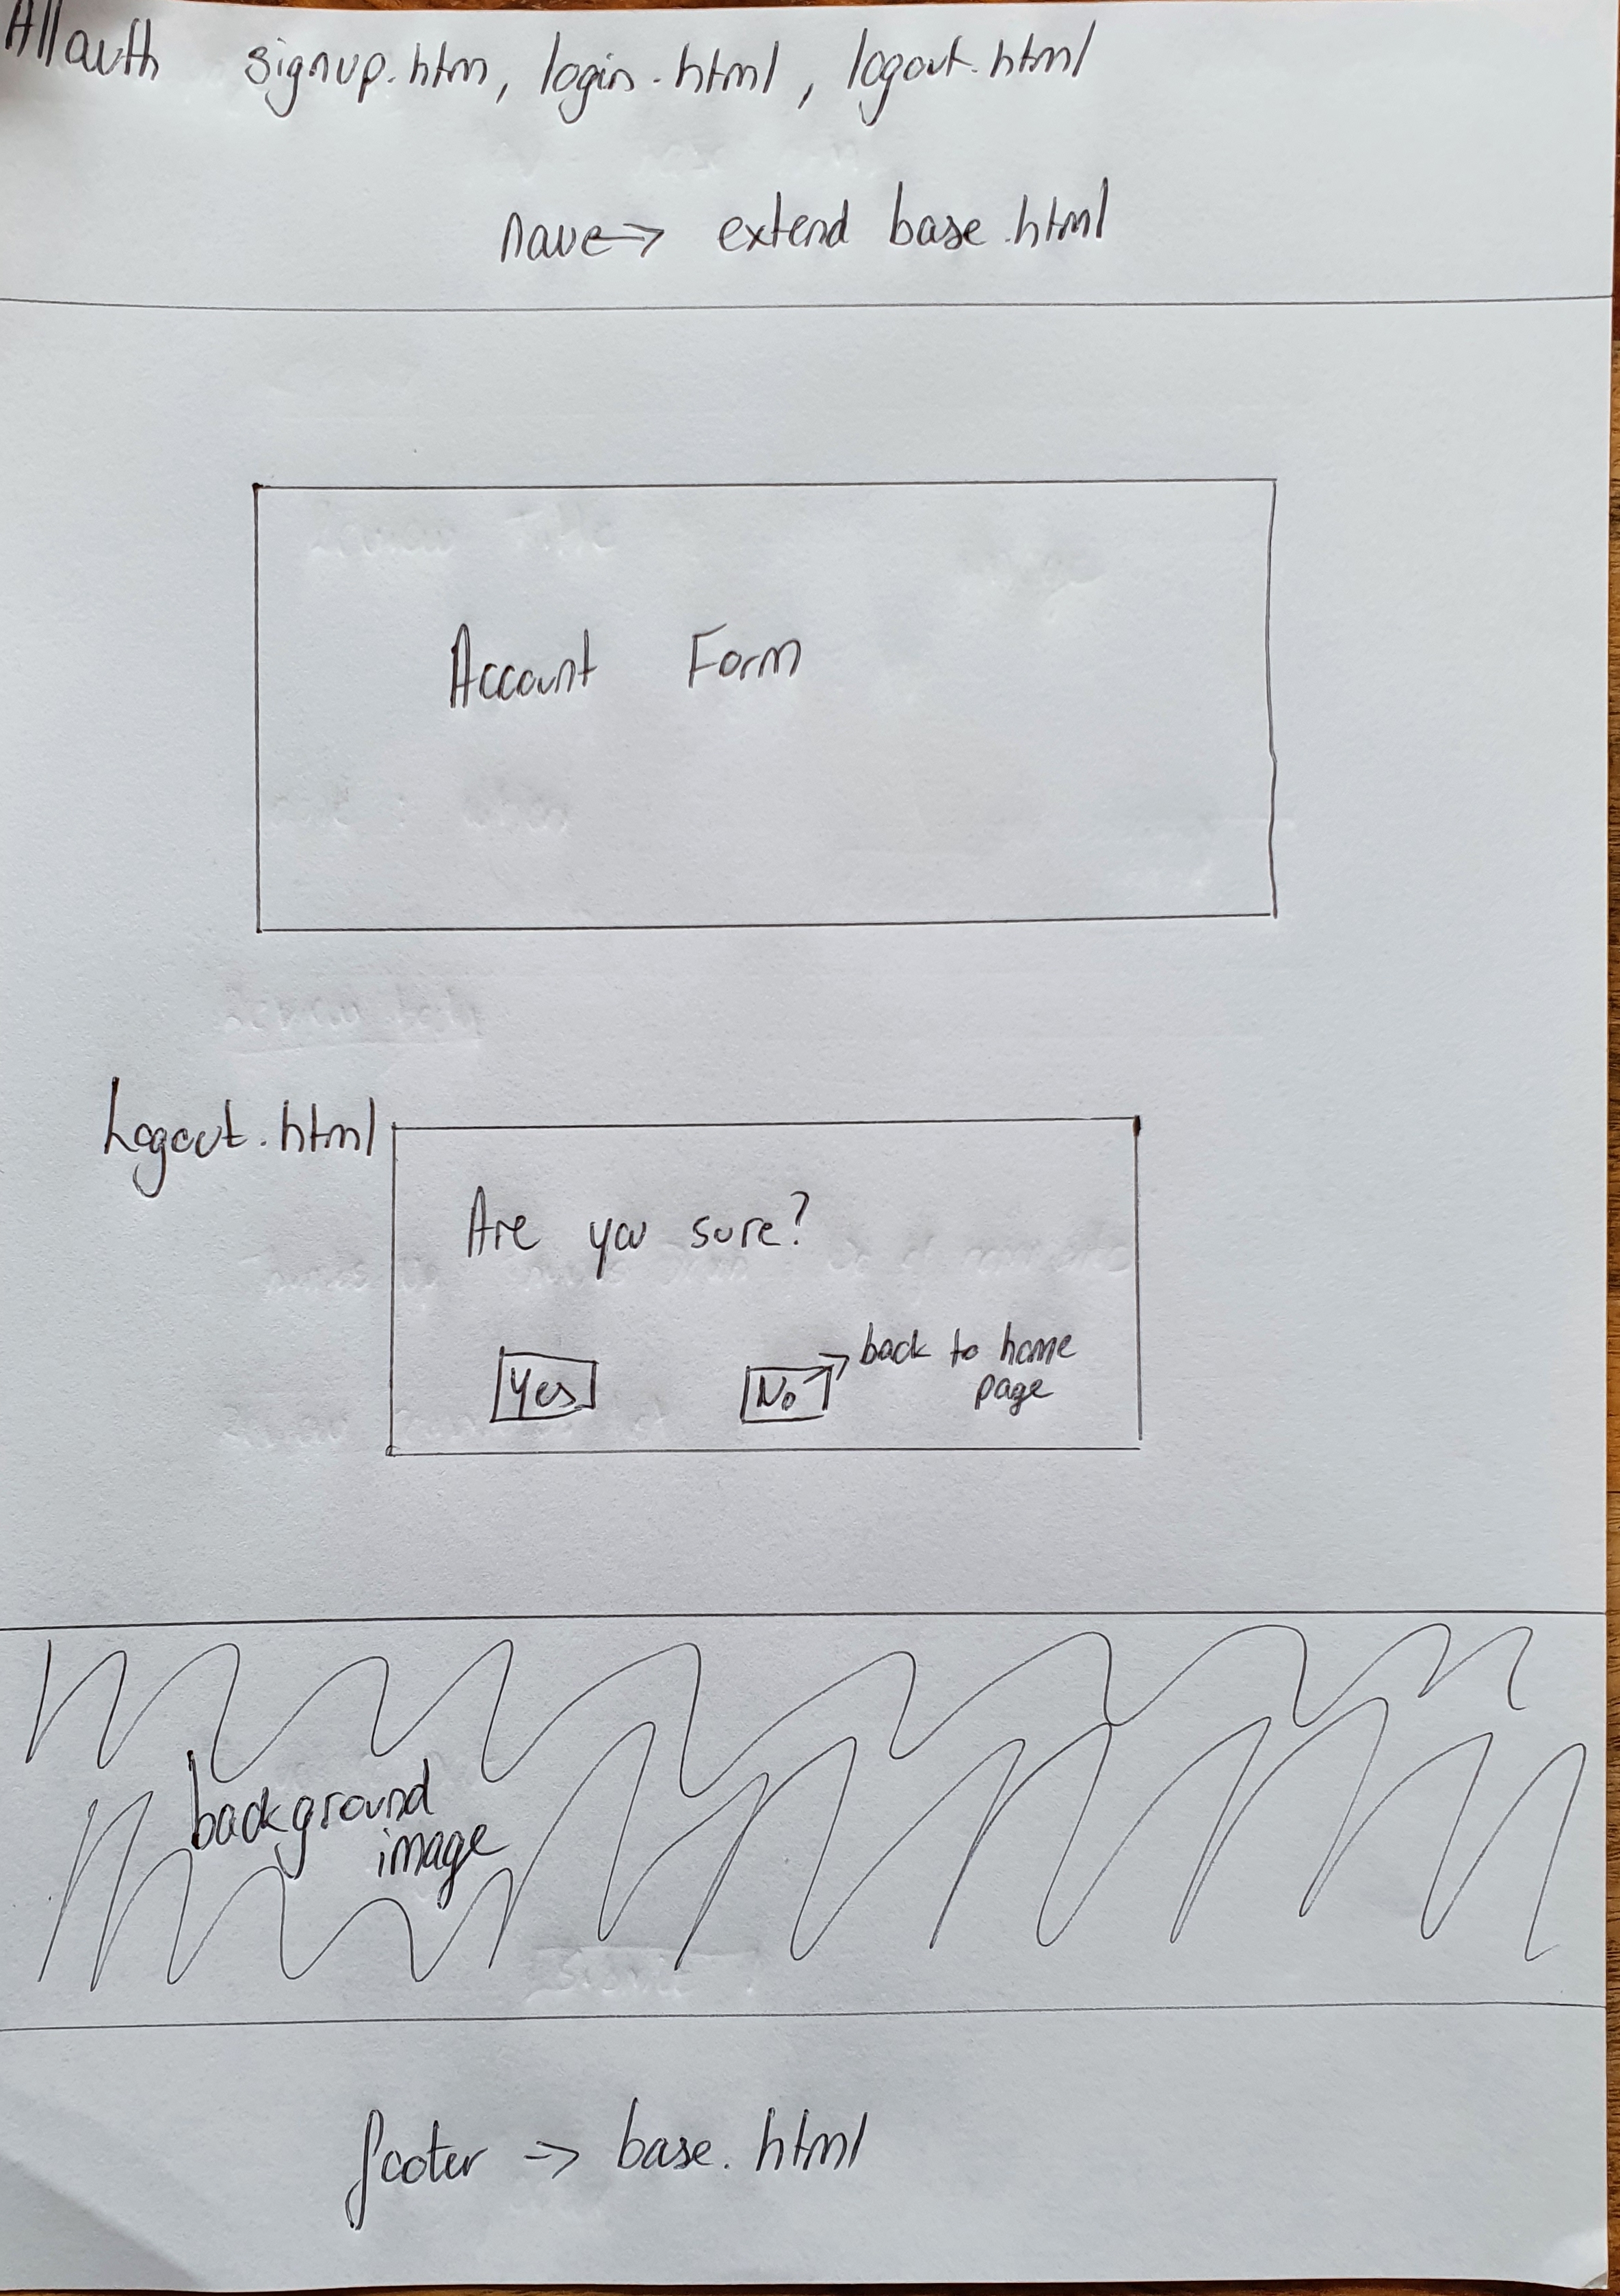 Allauth signup.htm, login.html, logout.html
nave -> extend base.html
Account Form
Logout.html
Are you sure?
Yes No -> back to home
page
background
image
footer -> base.html